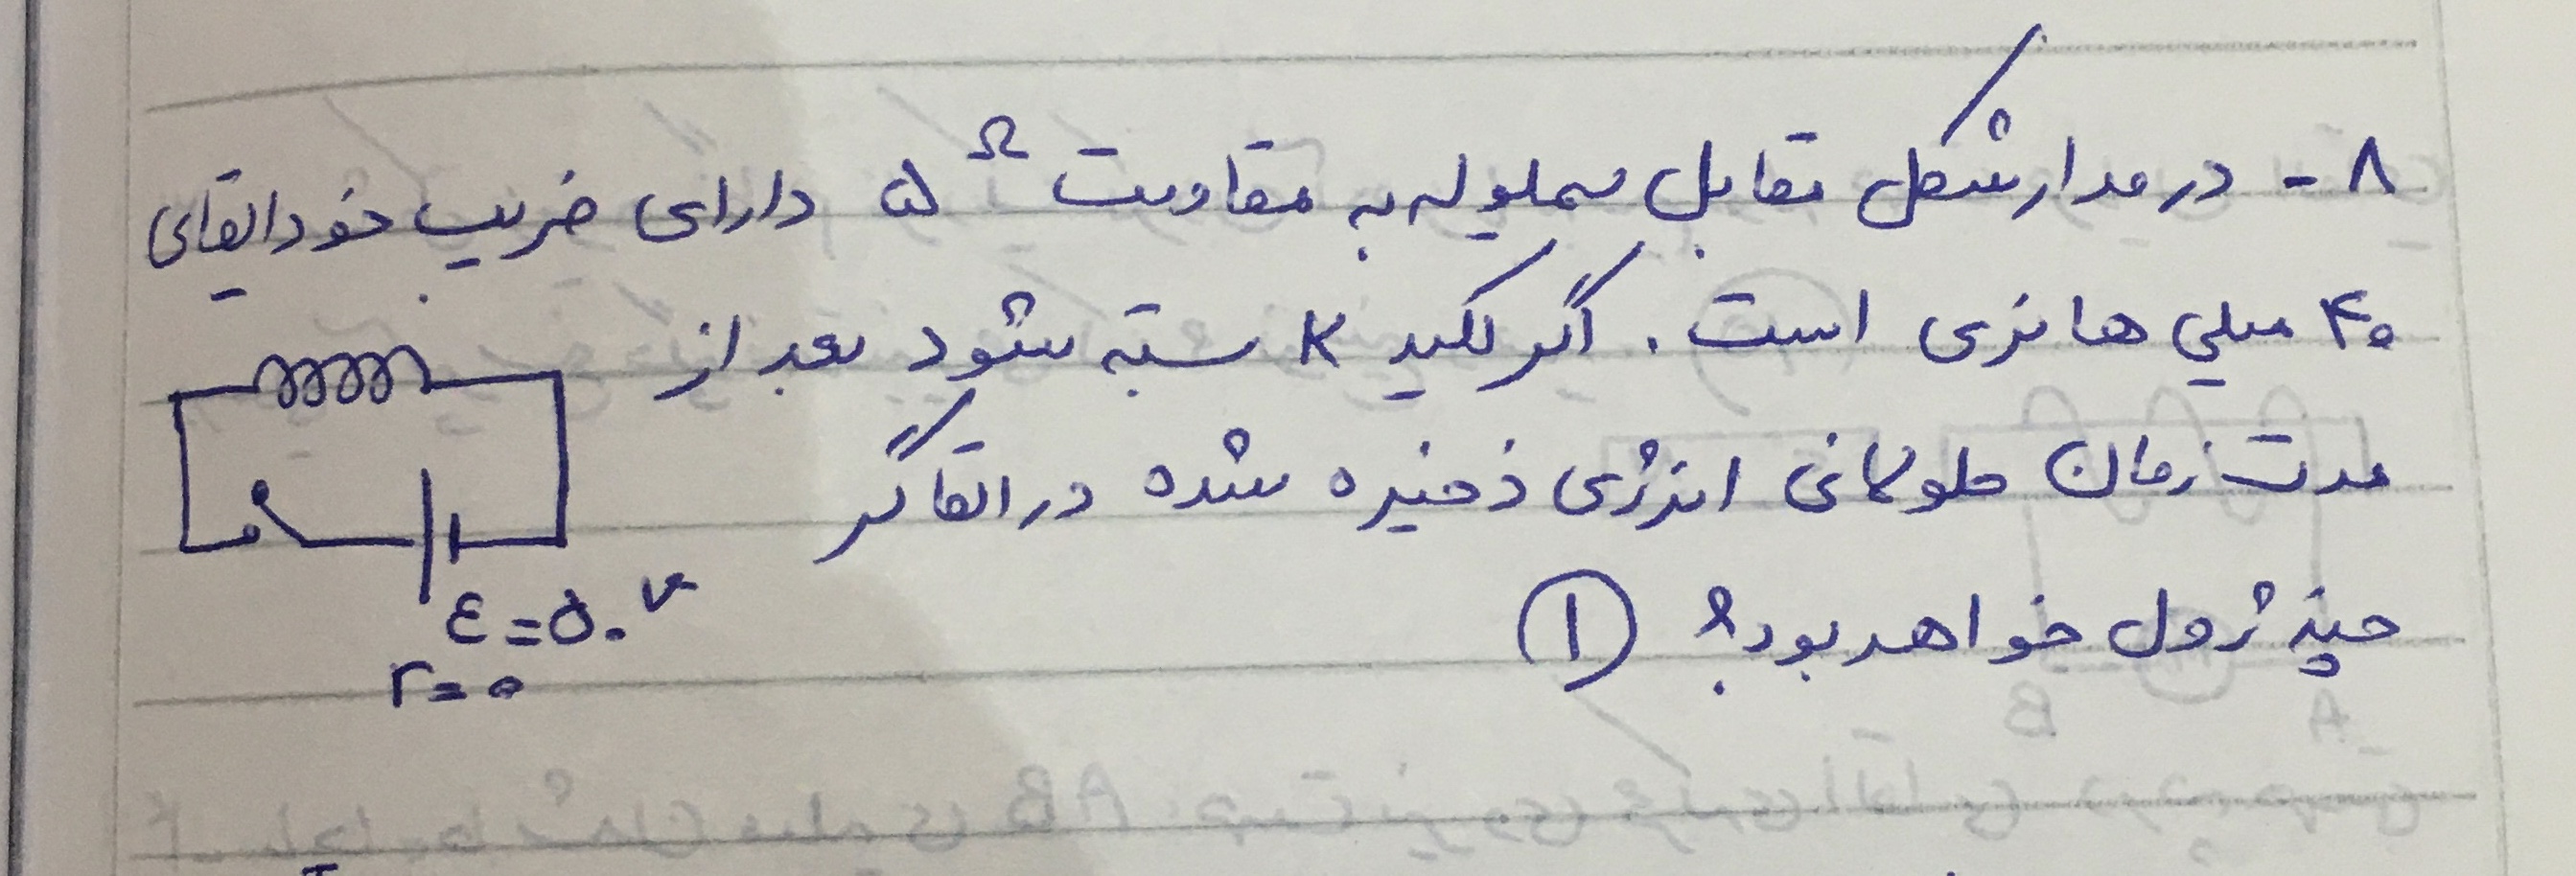 ۸- در مدار شکل مقابل سیملوله به مقاومت ۵Ω دارای ضریب خودالقای
۴۰ میلی هانری است. اگر کلید K بسته شود بعد از
مدت زمان طولانی انرژی ذخیره شده در القاگر
چند ژول خواهد بود؟ ①
ε=۵۰ v
r=۰